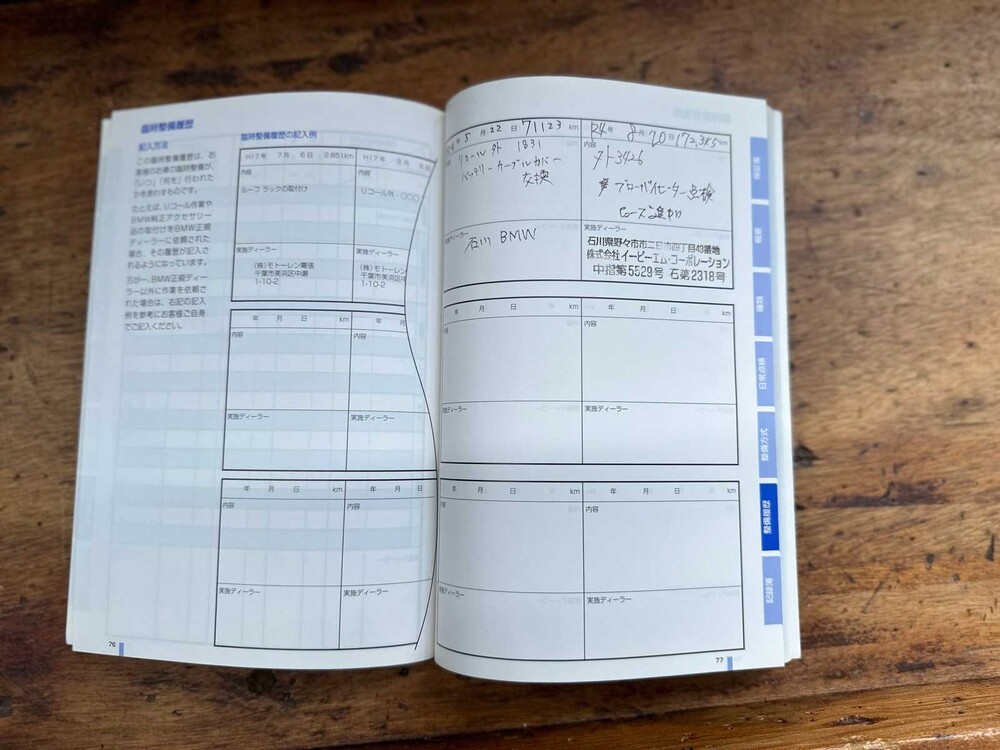 臨時整備履歴
記入方法
この臨時整備履歴は、お
客様のお車の臨時整備が、
「いつ」「何を」行われた
かを表わすものです。
たとえば、リコール作業や
BMW純正アクセサリー
品の取付けをBMW正規
ディーラーに依頼された
場合、その履歴が記入さ
れるようになっています。
万が一、BMW正規ディー
ラー以外に作業を依頼さ
れた場合は、右記の記入
例を参考にお客様ご自身
でご記入ください。
臨時整備履歴の記入例
H17年 7月 6日 2,851km
内容
ルーフ ラックの取付け
実施ディーラー
(株)モトーレン幕張
千葉市美浜区中瀬
1-10-2
H17年 8月
内容
リコール外-○○○
実施ディーラー
(株)モトーレン
千葉市美浜区中
1-10-2
年 月 日 km
内容
実施ディーラー
年 月
内容
実施ディーラー
年 月 日 km
内容
実施ディーラー
年 月 日
内容
実施ディーラー
76
年 5月 22日 71123 km
リコール外 1831
バッテリーケーブルカバー
交換
実施ディーラー
石川 BMW
24年 8月 20日 172,385km
内容
外3426
ブローバイヒーター点検
実施ディーラー
石川県野々市市二日市四丁目43番地
株式会社イービーエム・コーポレーション
中指第5529号 石第2318号
年 月 日 km
内容
実施ディーラー
年 月 日 km
内容
実施ディーラー
年 月 日 km
内容
実施ディーラー
年 月 日 km
内容
実施ディーラー
77
保証書
概要
種類
日常点検
整備方式
整備履歴
記録簿